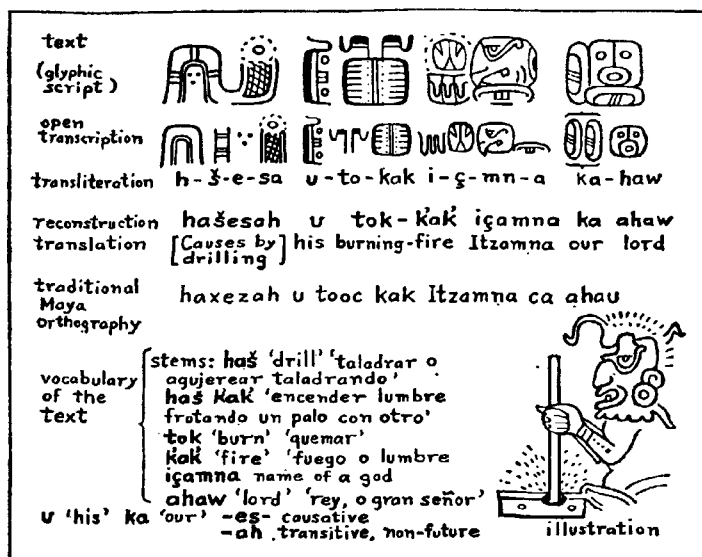 text
(glyphic
script)
open
transcription
transliteration h-š-e-sa u-to-kak i-ç-mn-a ka-haw
reconstruction hašesah u tok-k̓ak̓ içamna ka ahaw
translation [Causes by drilling] his burning-fire Itzamna our lord
traditional
Maya haxezah u tooc kak Itzamna ca ahau
orthography
stems: haš 'drill' 'taladrar o
vocabulary agujerear taladrando'
of the haš k̓ak̓ 'encender lumbre
text frotando un palo con otro'
tok 'burn' 'quemar'
k̓ak̓ 'fire' 'fuego o lumbre
içamna name of a god
ahaw 'lord' 'rey, o gran señor'
u 'his' ka 'our' -es- causative
-ah transitive, non-future
illustration